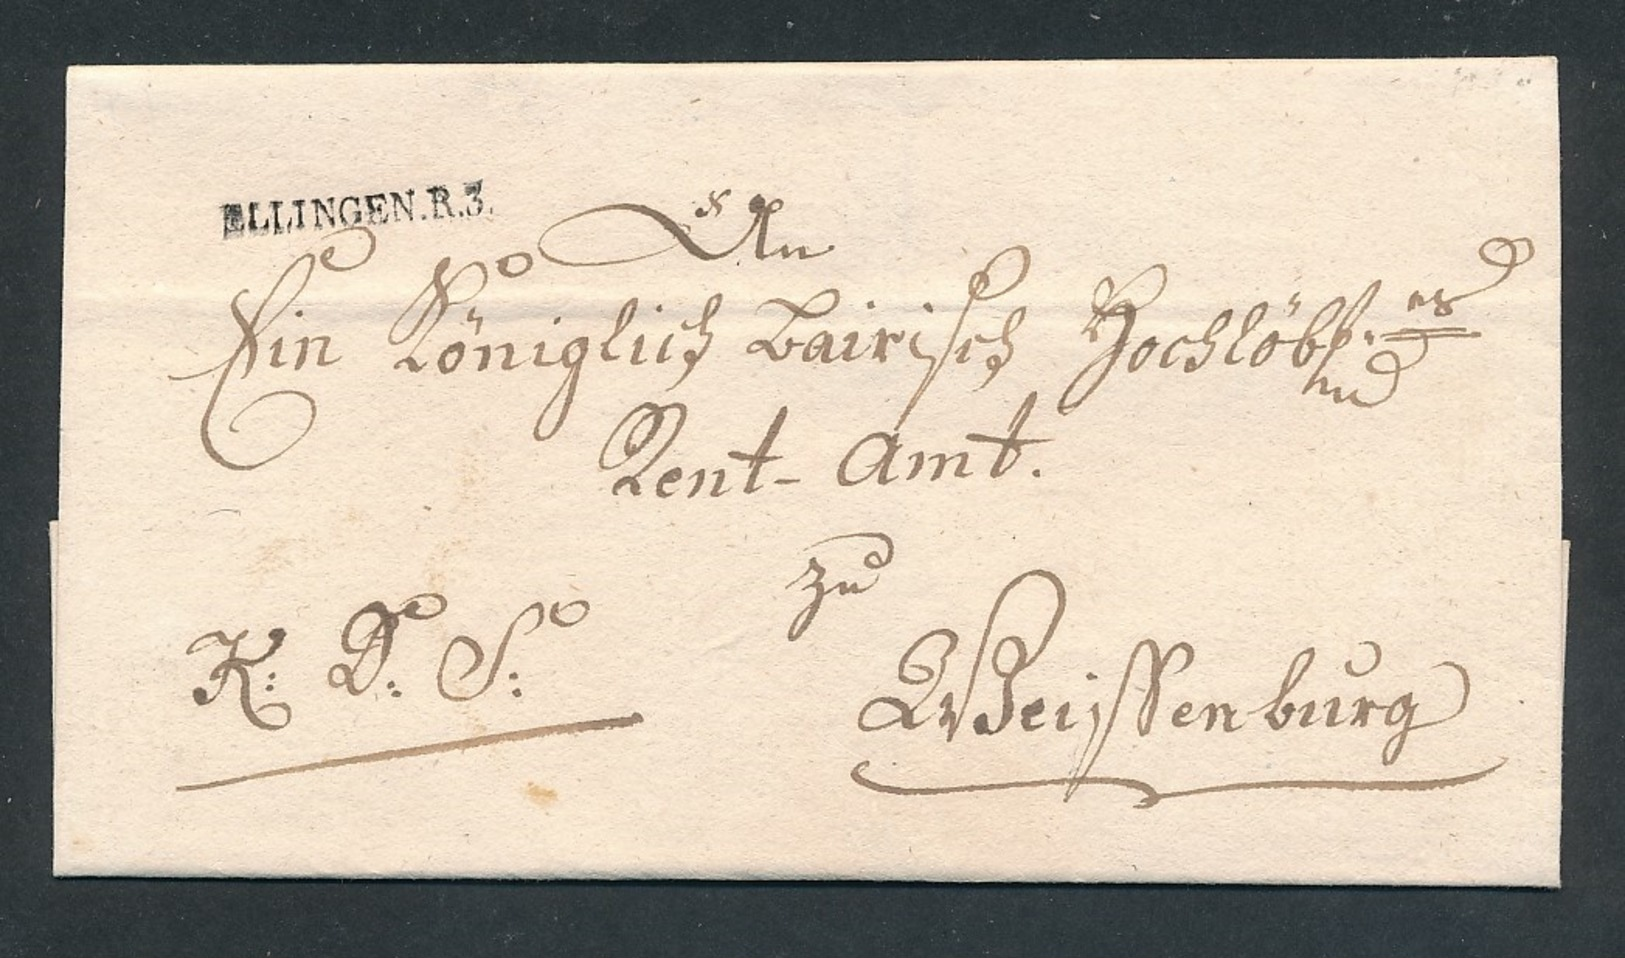 ELLINGEN.R.3.
An
Ein Königlich Bairisch Hochlöbl. es
Rent-Amt.
zu
K: D: S:
Weissenburg